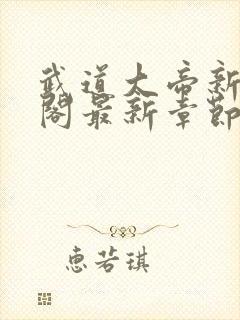 武道大帝新
阁最新章节
惠若琪